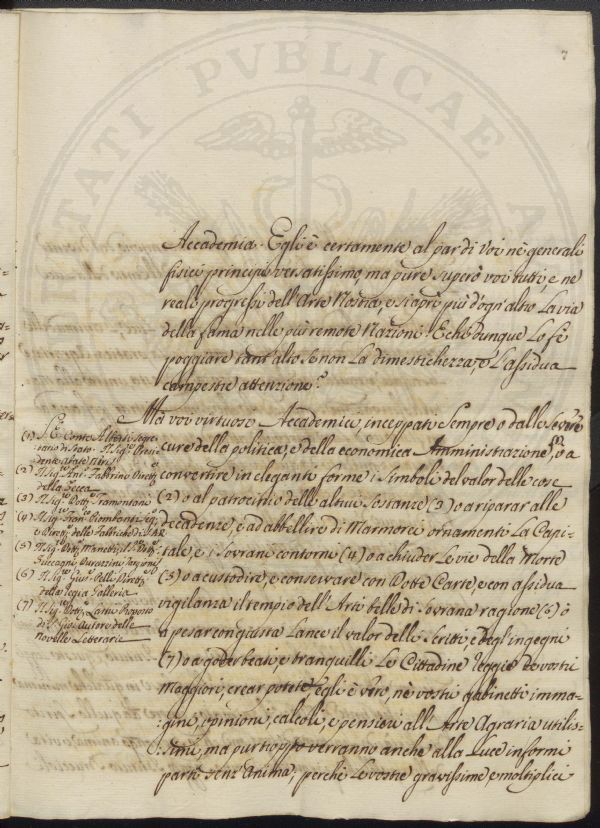 7
Accademia. Egli è certamente al par di Voi nè generali
fisici principii versatissimo, ma pure superò voi tutti, e ne
reali progressi dell'Arte Nostra, e s'aprì più d'ogn'altro La via
della fama nelle più remote Nazioni. E chè Dunque Lo fè
poggiare tant'alto se non La dimestichezza, e L'assidua
campestre attenzione?
Ma voi virtuosi Accademici, inceppati Sempre o dalle Severe
cure della politica, e della economica Amministrazione, (1) o a
convertire in eleganti forme i Simboli del valor delle cose
(2) o al patrocinio delle altrui Sostanze (3) o a riparar alle
decadenze, e ad abbellire di Marmorei ornamenti La Capi-
tale, e i Sovrani contorni (4) o a chiuder Le vie della Morte
(5) o a custodire, e conservare con Dotte Carte, e con assidua
vigilanza il tempio dell'Arti belle di Sovrana ragione (6) ò
a pesar con giusta Lance il valor delli Scritti, e degl'ingegni
(7) o a goder beati, e tranquilli Le Cittadine Reggie de vostri
Maggiori, crear potete, egli è vero, nè vostri gabinetti imma-
gini, opinioni, calcoli, e pensieri all'Arte Agraria utilis-
simi, ma purtroppo verranno anche alla Luce informi
parti senz'anima, perchè Le vostre gravissime, e moltiplici
(1) S. E. Conte Alberti Segre-
tario di Stato. Il Sig.re Presi-
dente
(2) Il Sig.re Ant. Fabbrini Dirett.e
della Zecca
(3) Il Sig.re Dott.re Tramontani
(4) Il Sig.re Fran.co Piombanti Ing.
e Dirett. delle Fabbriche di S.A.R.
(5) Il Sig.re Dott. Manetti, il S.re Dott.
(6) Il Sig.re Gius. Pelli Dirett.e
della Regia Galleria
(7) Il Sig.re Dott.re Lastri Proposto
di S. Gio: Autore delle
novelle Letterarie